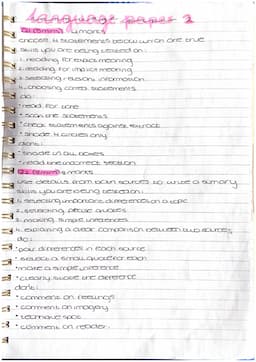 Language paper 2
Q1 (5mins) 4 marks
choose 4 statements below which are true
skills you are being tested on:
1. reading for explicit meaning
2. reading for implicit meaning
3. selecting relevant information
4. choosing correct statements
do:
• read for tone
• scan the statements
• check statements against extract
• shade 4 circles only
don't:
• shade all boxes
• read the incorrect section
Q2 (8mins) 8 marks
use details from both sources to write a summary
skills you are being tested on:
1. selecting important differences on a topic
2. selecting precise quotes
3. making simple inferences
4. explaining a clear comparison between two sources
do:
• pair differences in each source
• select a small quote for each
• make a simple inference
• clearly state the difference
don't:
• comment on feelings
• comment on imagery
• technique spot
• comment on reader